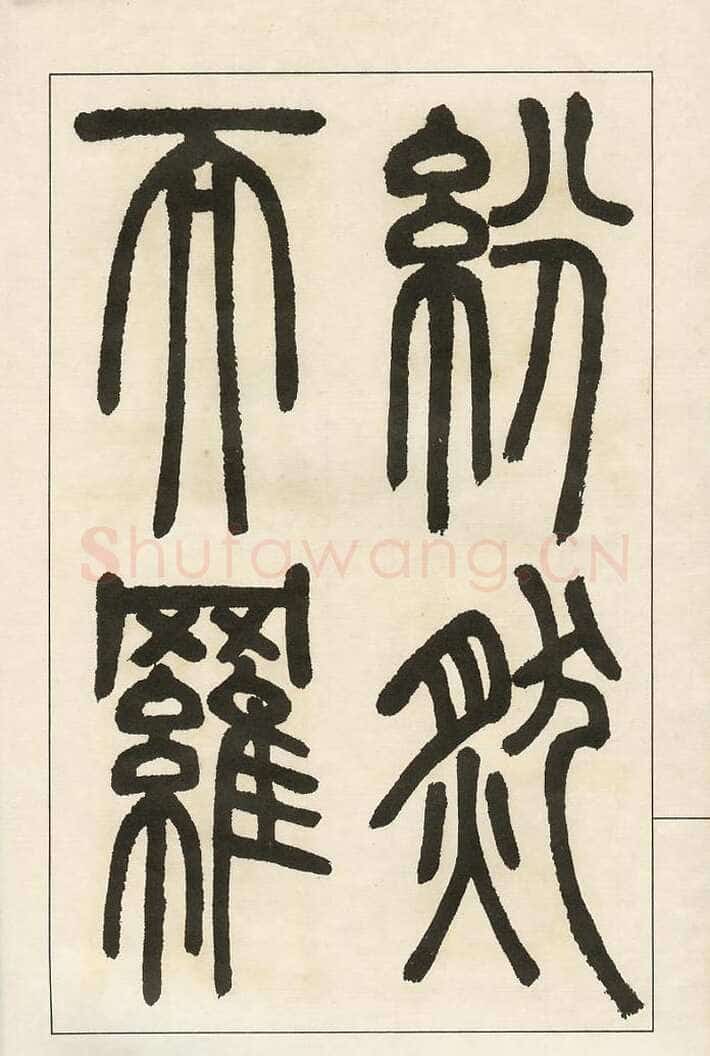 紛然
而羅
Shufawang.CN